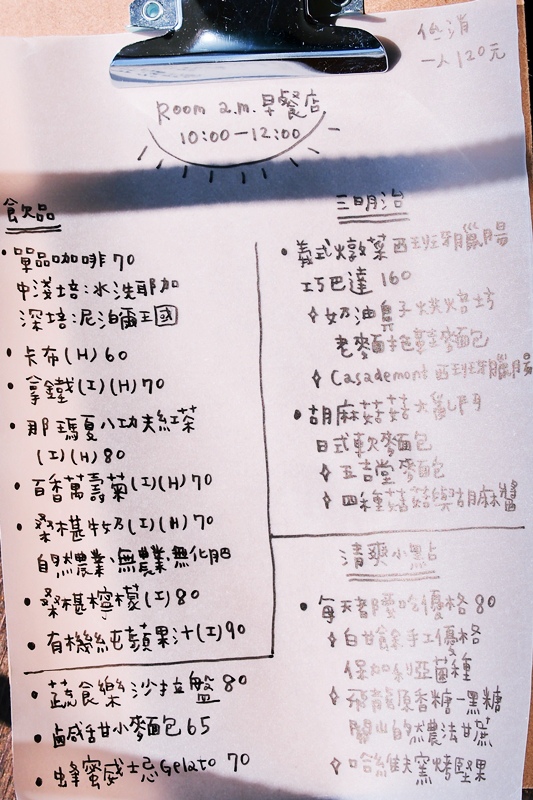 低消
一人120元
Room a.m.早餐店
10:00-12:00
飲品
單品咖啡70
中淺焙:水洗耶加
深焙:尼泊爾王國
卡布(H)60
拿鐵(I)(H)70
那瑪夏八功夫紅茶
(I)(H)80
百香萬壽菊(I)(H)70
桑椹牛奶(I)(H)70
自然農業、無農藥無化肥
桑椹檸檬(I)80
有機純蘋果汁(I)90
蔬食樂沙拉盤80
鹹甜小麵包65
蜂蜜威士忌Gelato 70
三明治
義式燉菜西班牙臘腸
巧巴達160
奶油鼻子烘焙坊
老麵拖鞋麵包
Casademont西班牙臘腸
胡麻菇菇大亂鬥
日式軟麵包
五吉堂麵包
四種菇菇與胡麻醬
清爽小點
每天都要吃優格80
自甘餘手工優格
保加利亞菌種
飛龍原香糖-黑糖
關山自然農法甘蔗
哈維夫窯烤堅果